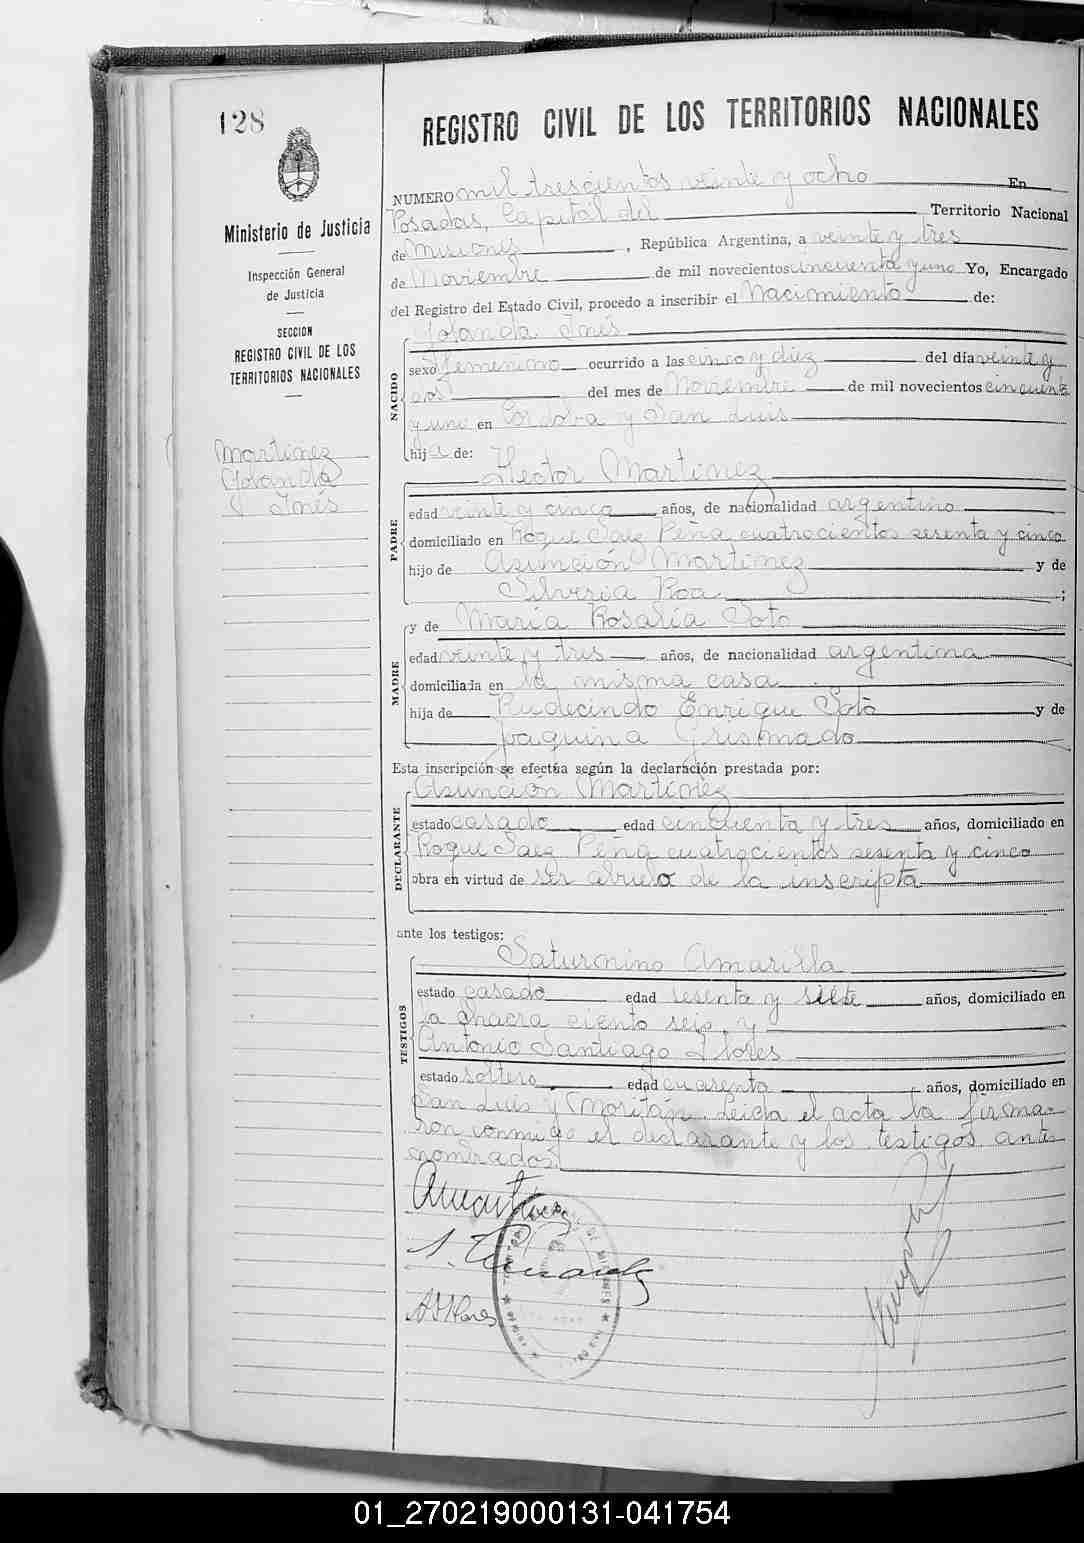 128
REGISTRO CIVIL DE LOS TERRITORIOS NACIONALES
Ministerio de Justicia
Inspección General
de Justicia
SECCION
REGISTRO CIVIL DE LOS
TERRITORIOS NACIONALES
Martinez
Yolanda
Inés
NUMERO mil trescientos veinte y ocho En
Posadas, Capital del Territorio Nacional
de Misiones, República Argentina, a veinte y tres
de Noviembre de mil novecientos cincuenta y uno Yo, Encargado
del Registro del Estado Civil, procedo a inscribir el Nacimiento de:
Yolanda Inés
NACIDO
sexo femenino ocurrido a las cinco y diez del día veinte y
dos del mes de Noviembre de mil novecientos cincuenta
y uno en Córdoba y San Luis
hija de:
Hector Martinez
PADRE
edad veinte y cinco años, de nacionalidad argentino
domiciliado en Roque Saez Peña cuatrocientos sesenta y cinco
hijo de Asunción Martinez y de
Silveria Roa ;
y de María Rosalía Soto
MADRE
edad veinte y tres años, de nacionalidad argentina
domiciliada en la misma casa
hija de Rudecindo Enrique Soto y de
Joaquina Grismado
Esta inscripción se efectúa según la declaración prestada por:
Asunción Martinez
DECLARANTE
estado casado edad cincuenta y tres años, domiciliado en
Roque Saez Peña cuatrocientos sesenta y cinco
obra en virtud de ser abuelo de la inscripta
ante los testigos:
Saturnino Amarilla
TESTIGOS
estado casado edad sesenta y siete años, domiciliado en
la chacra ciento seis, y
Antonio Santiago Flores
estado soltero, edad cuarenta años, domiciliado en
San Luis y Moritán. Leída el acta la firma-
ron conmigo el declarante y los testigos ante
nombrados.
AMartinez
01_270219000131-041754